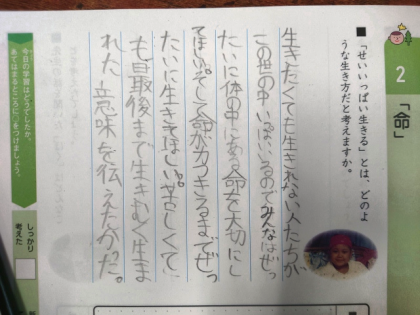 2 「命」
■「せいいっぱい生きる」とは、どのよ
うな生き方だと考えますか。
生きたくても生きれない人たちが
この世の中いっぱいいるのでみんなはぜっ
たいに体の中にある命を大切にし
てほしい。そして命が力つきるまでぜっ
たいに生きてほしい。苦しくて
も最後まで生きぬく生ま
れた意味を伝えたかった。
今日の学習はどうでしたか。
あてはまるところに○をつけましょう。
しっかり
考えた